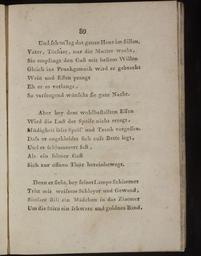 80
Und schon lag das ganze Haus im stillen,
Vater, Töchter, nur die Mutter wacht,
Sie empfängt den Gast mit bestem Willen
Gleich ins Prunkgemach wird er gebracht
Wein und Essen prangt
Eh er es verlangt,
So versorgend wünscht sie gute Nacht.
Aber bey dem wohlbestellten Essen
Wird die Lust der Speise nicht erregt,
Müdigkeit läßt Speis' und Trank vergessen.
Daß er angekleidet sich aufs Bette legt,
Und er schlummert fast,
Als ein seltner Gast
Sich zur offnen Thür hereinbewegt.
Denn er sieht, bey seiner Lampe Schimmer
Tritt mit weissem Schleyer und Gewand,
Sittsam still ein Mädchen in das Zimmer
Um die Stirn ein schwarz und goldnes Band.